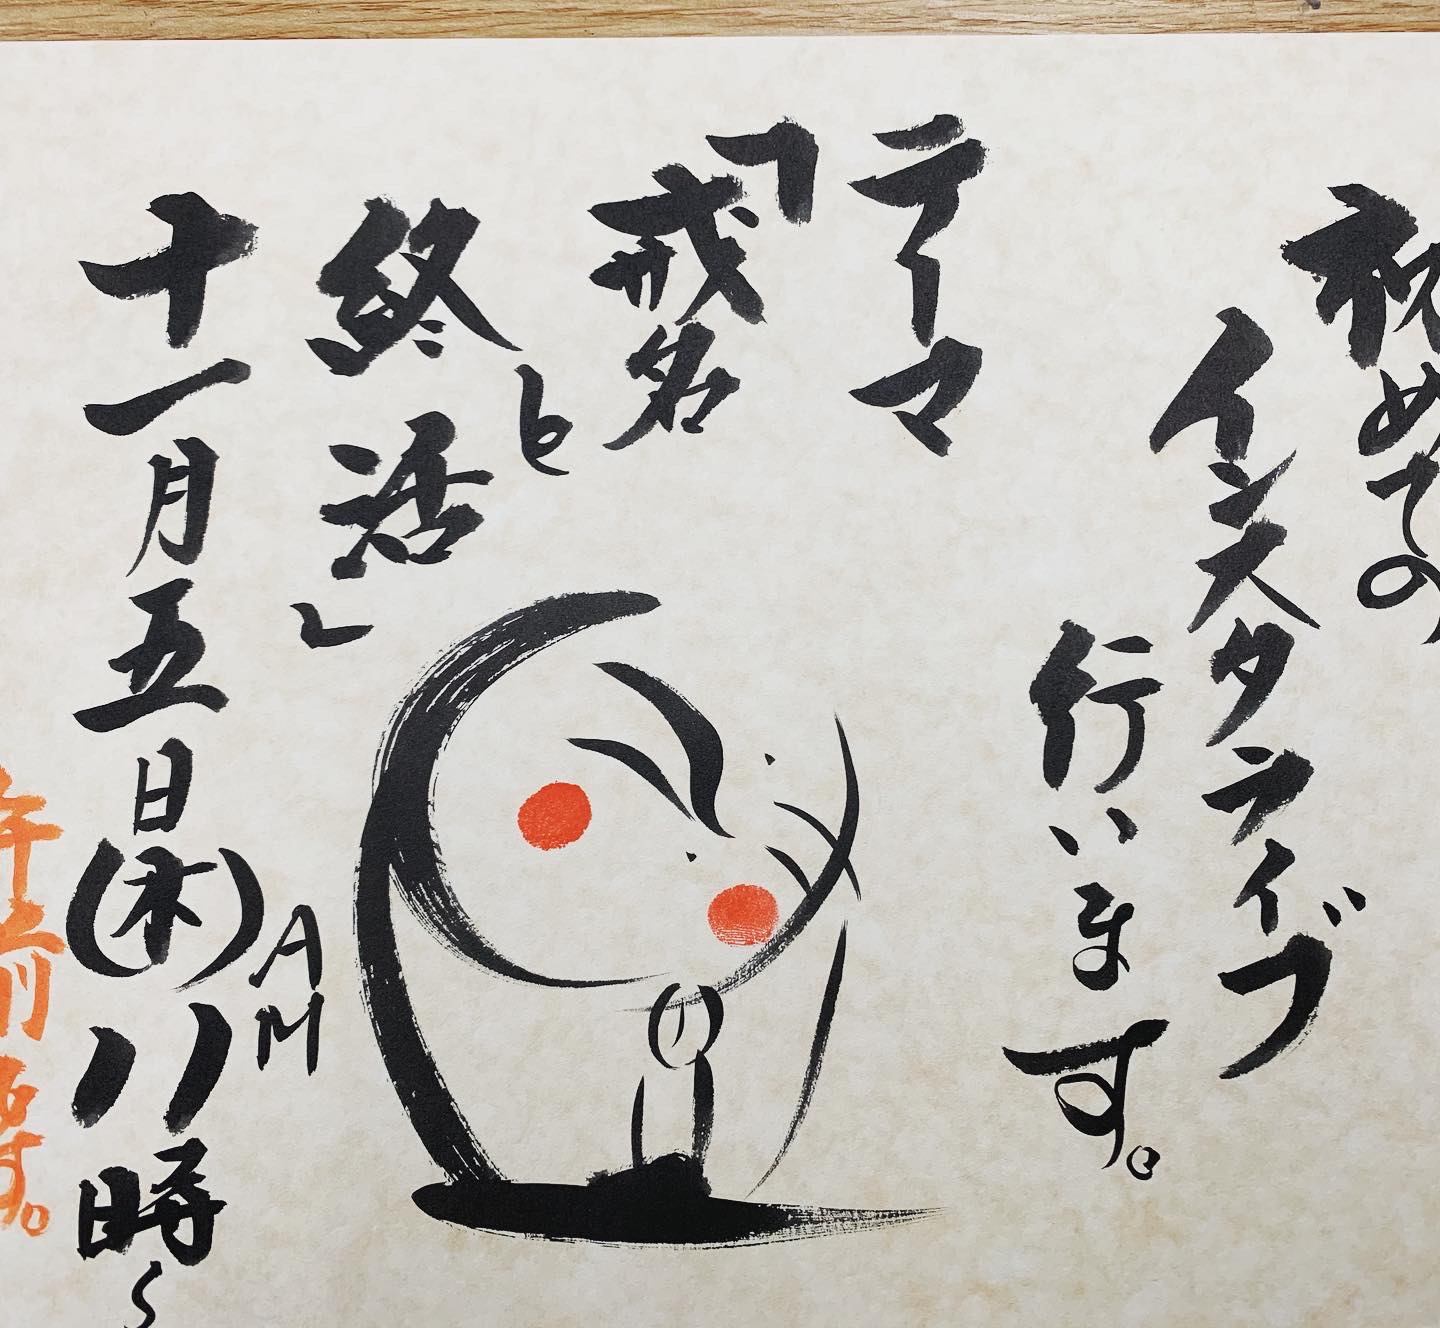 初めての
インスタライブ
行います。
テーマ
「戒名
と
終活」
十一月五日(木)
AM
八時〜
ます。